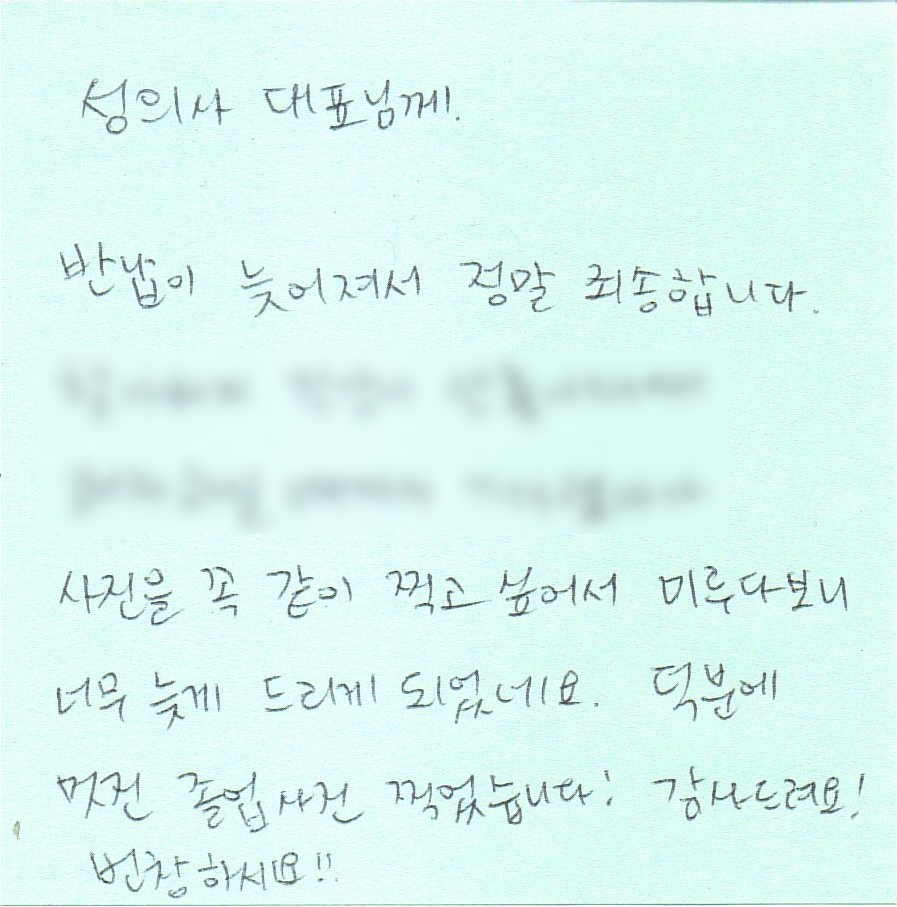 성의사 대표님께!
반납이 늦어져서 정말 죄송합니다.
사진을 꼭 같이 찍고 싶어서 미루다보니
너무 늦게 드리게 되었네요. 덕분에
멋진 졸업사진 찍었습니다! 감사드려요!
번창하세요!!